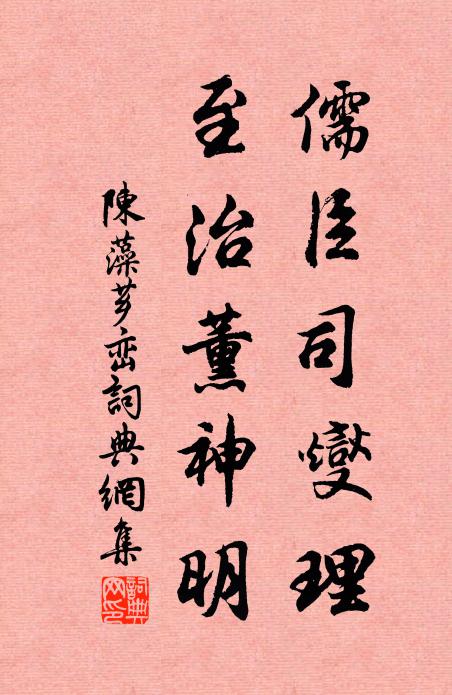 儒臣司燮理
至治薰神明
陳藻詞典網集
詞典网印